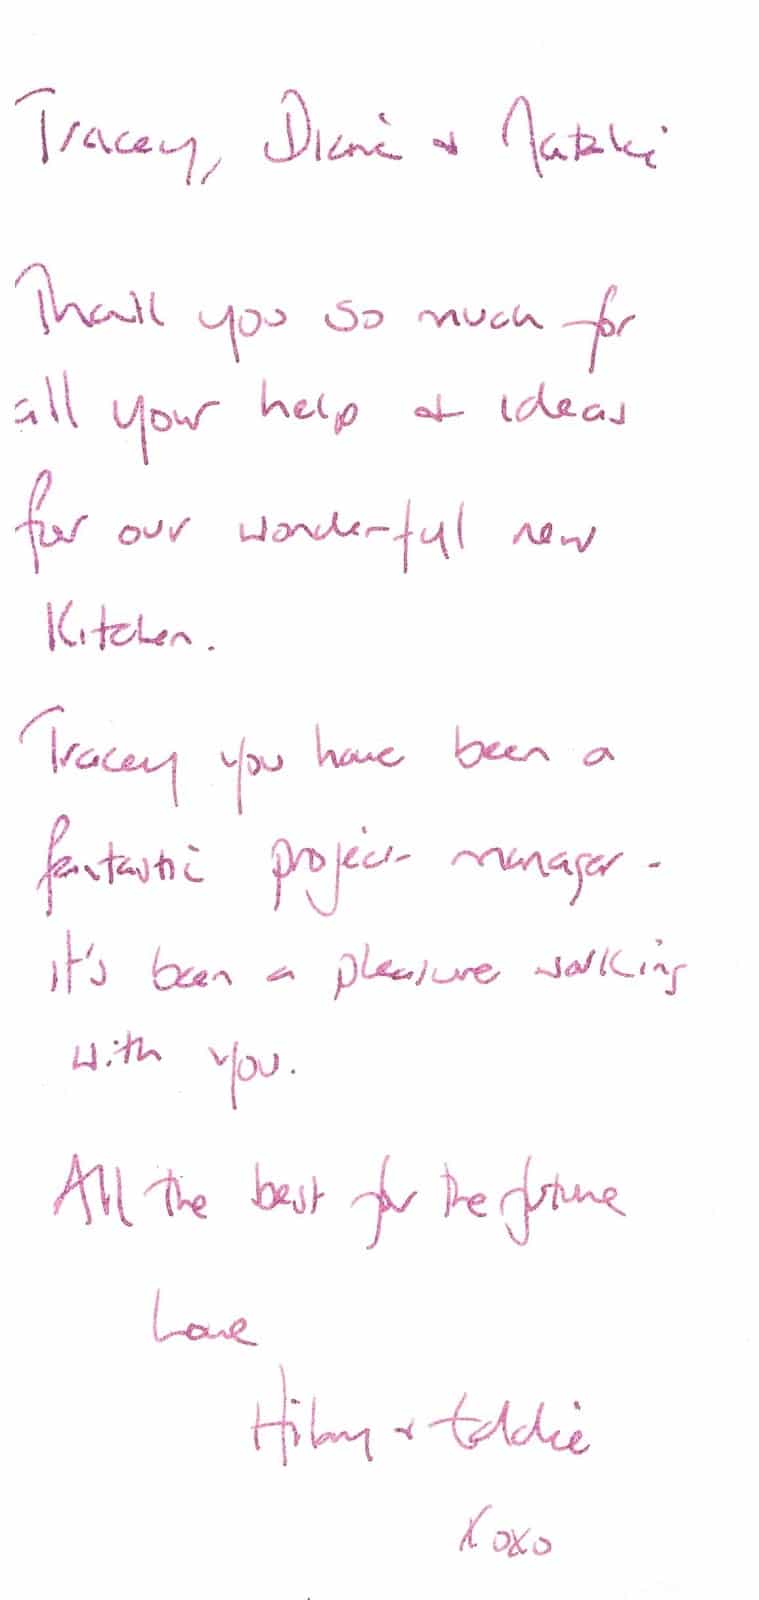 Tracey, Diane &
Thank you so much for
all your help & ideas
for our wonderful new
Kitchen.
Tracey you have been a
fantastic project manager -
it's been a pleasure working
with you.
All the best for the future
Love
Hilary & Eddie
xoxo